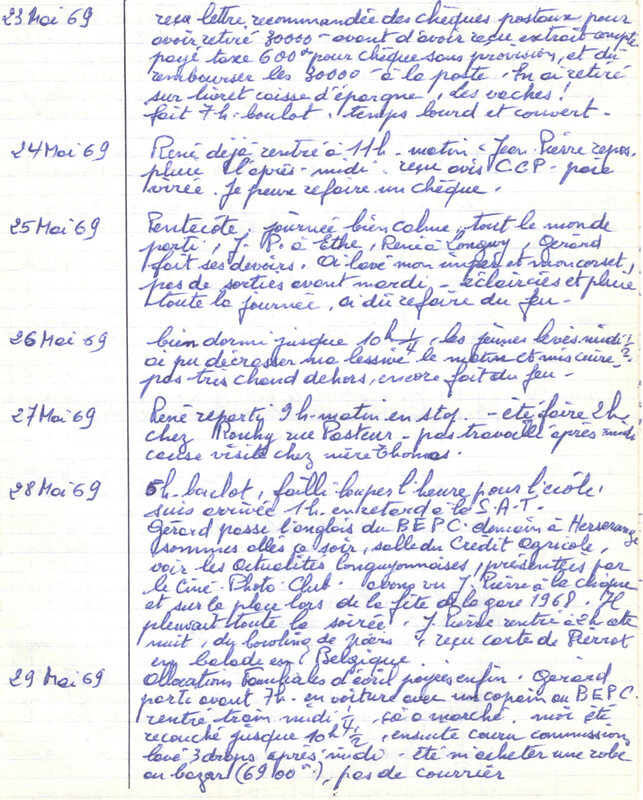 23 Mai 69 reçu lettre recommandée des chèques postaux pour
avoir retiré 30000 - avant d'avoir reçu extrait compte
payé taxe 600 pour chèque sans provision, et dû
rembourser les 30000 - à la poste. En ai retiré
sur livret caisse d'épargne, les vaches!
fait 7h. boulot. temps lourd et couvert -
24 Mai 69 René déjà rentré à 11h - matin - Jean Pierre repos -
pluie l'après-midi. reçu avis CCP - paie
virée. Je peux refaire un chèque.
25 Mai 69 Pentecôte, journée bien calme, tout le monde
parti, J. P. à Ethe, René à Longwy, Gérard
fait ses devoirs. Ai lavé mon imper et mon corset,
pas de sorties avant mardi - éclaircies et pluie
toute la journée, ai dû refaire du feu -
26 Mai 69 bien dormi jusque 10h 1/4, les jeunes levés midi 1/2
ai pu décrasser ma lessive le matin et mis cuire -
pas très chaud dehors, encore fait du feu -
27 Mai 69 René reparti 9h - matin en stop. - été faire 2h
chez Rouhy rue Pasteur - pas travaillé après midi
cause visite chez mère Thomas.
28 Mai 69 5h. boulot, failli louper l'heure pour l'école,
suis arrivée 1h. en retard à la S.A.T.
Gérard passe l'anglais du BEPC. demain à Herserange
sommes allés ce soir, salle du Crédit Agricole,
voir les Actualités longuyonnaises, présentées par
le Ciné-Photo-Club. avons vu J. Pierre à la
et sur la place lors de la fête de la gare 1968. Il
pleuvait toute la soirée. J. Pierre rentré à 2h cette
nuit, du bowling de . reçu carte de Pierrot
en balade en Belgique.
29 Mai 69 Allocations Familiales d'avril payées enfin. Gérard
parti avant 7h - en voiture avec un copain au BEPC
rentré train midi 1/4, ça a marché. moi été
recouché jusque 10h 1/2, ensuite couru commission
lavé 3 draps après-midi - été m'acheter une robe
au bazar (69 00), pas de courrier